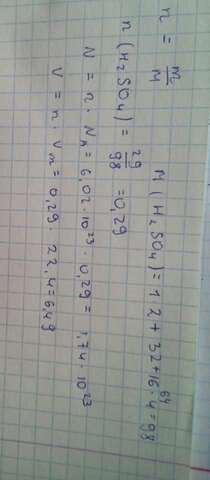 n = m/M
M (H₂SO₄) = 1·2 + 32 + 16·4 = 98
64
n (H₂SO₄) = 29/98 = 0,29
N = n · Nₐ = 6,02 · 10²³ · 0,29 = 1,74 · 10²³
V = n · Vₘ = 0,29 · 22,4 = 6,49